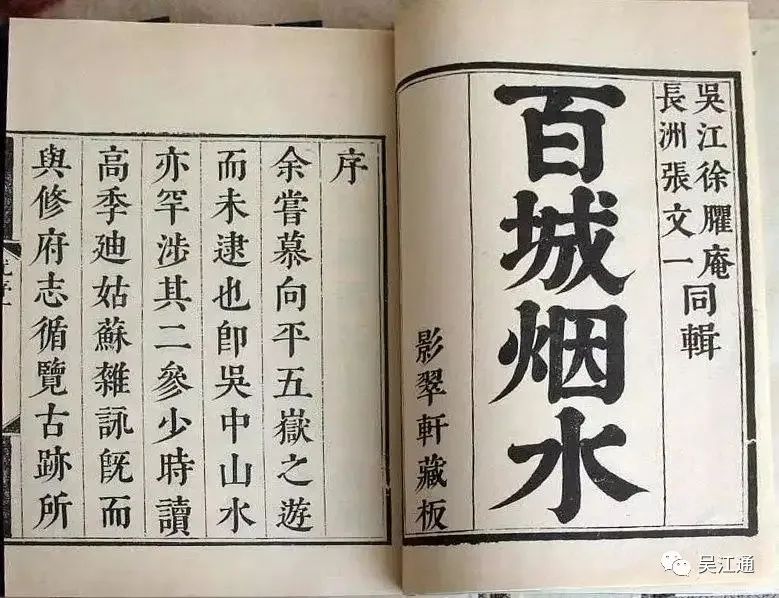 吳江徐臞庵
長洲張文一
同輯
百城烟水
影翠軒藏板
序
余嘗慕向平五嶽之遊
而未逮也卽吳中山水
亦罕涉其二參少時讀
高季廸姑蘇雜詠旣而
與修府志循覽古跡所
吴江通